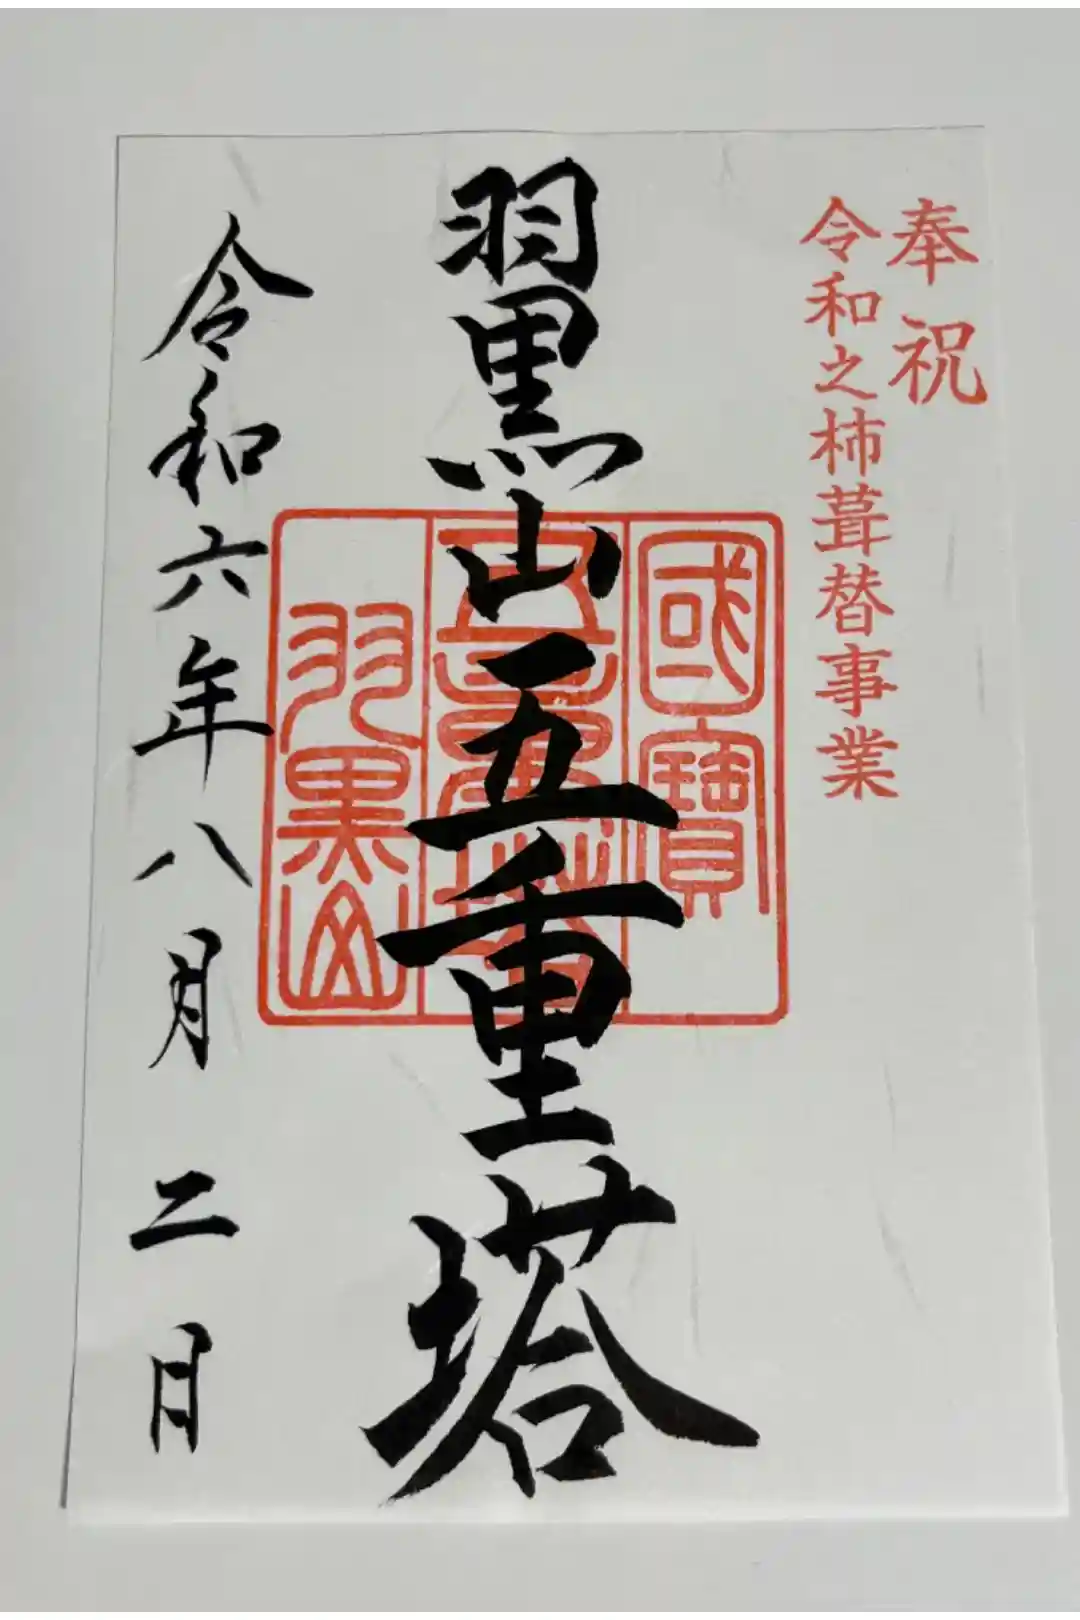 奉祝
令和之柿葺替事業
國寶
五重塔
羽黒山
羽黒山五重塔
令和六年八月二日